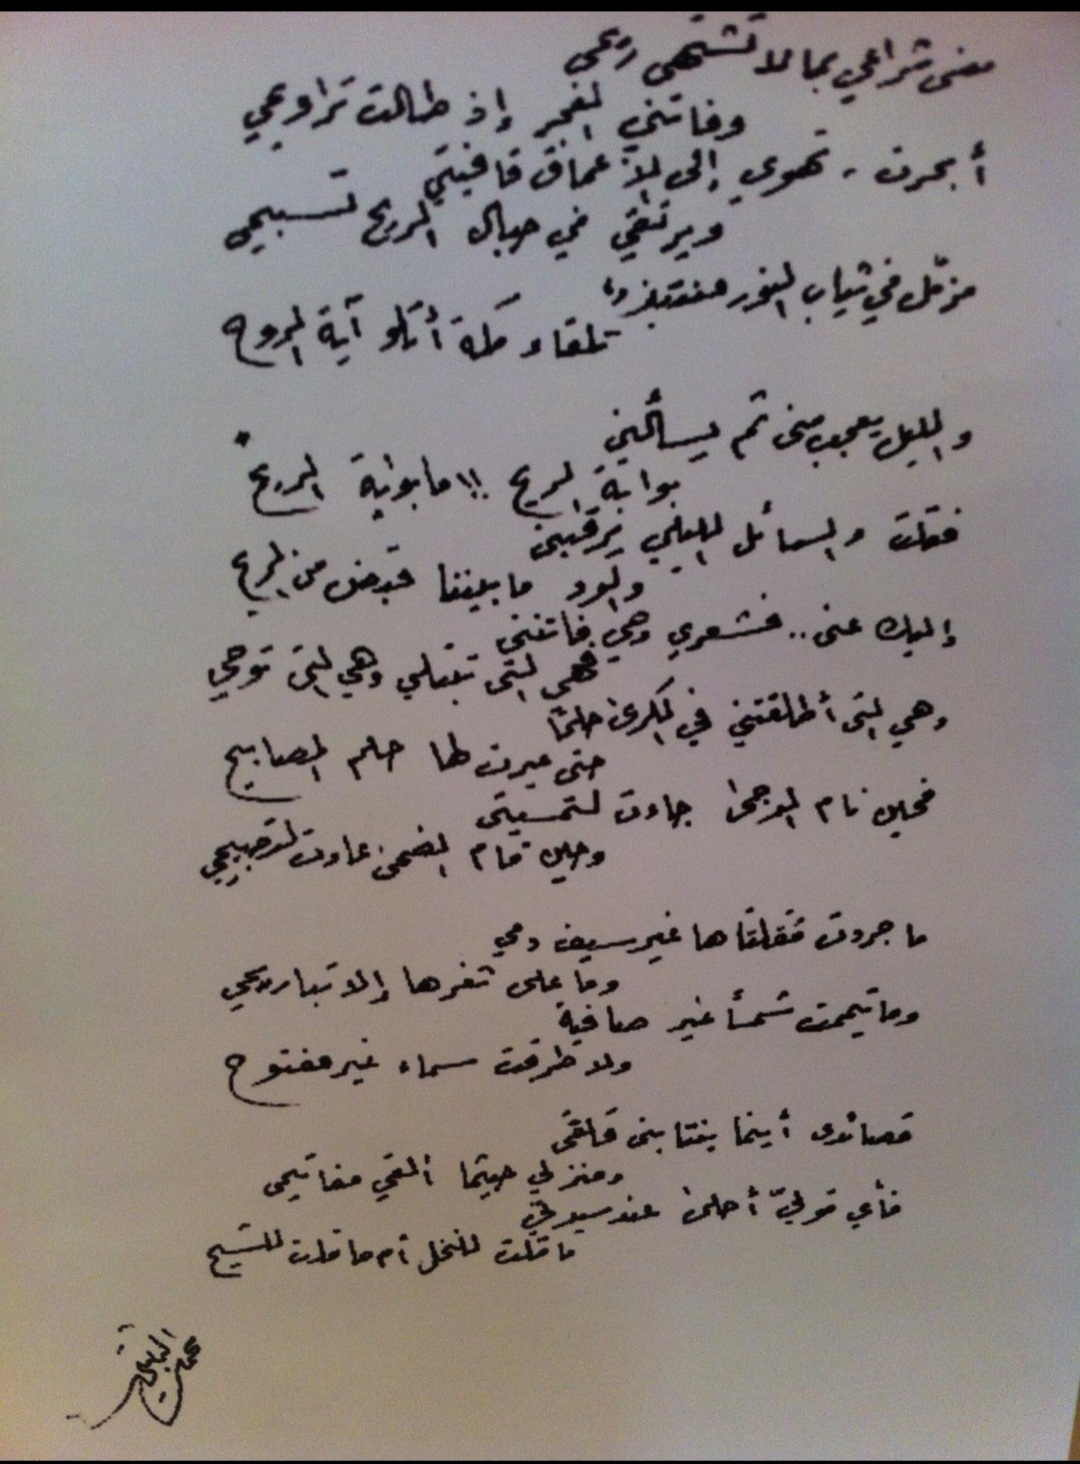 مضى شراعي بما لا تشتهي ريحي
وفاتني الفجر إذ طالت تراويحي
أبحرت .. تهوي إلى الأعماق قافيتي
ويرتقي في حبال الريح تسبيحي
مزمّل في ثياب النور منتبذ
تلقاء مكة أتلو آية الروح
والليل يعجب مني ثم يسألني
بوابة الريح !! ما بوابة الريح
فقلت والسائل الليلي يرقبني
والود ما بيننا قبض من الريح
إليك عني .. فشعري وحي فاتنتي
فهي التي تبتلي وهي التي توحي
وهي التي أطلقتني في الكرى حلمًا
حتى عبرت لها حلم المصابيح
فحين نام الدجى جاءت لتمسيتي
وحين قام الضحى عادت لتصبيحي
ما جردت مقلتاها غير سيف دمي
وما على ثغرها إلا تباريحي
وما تيممت شمسًا غير صافية
ولا طرقت سماء غير مفتوح
قصائدي أينما ينتابني قلقي
ومنزلي حيثما ألقي مفاتيحي
فأي قوليّ أحلى عند سيدتي
ما قلت للنخل أم ما قلت للشيح